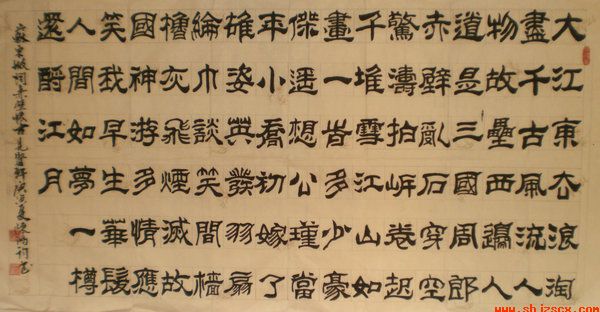 大江東去浪淘
盡千古風流人
物故壘西邊人
道是三國周郎
赤壁亂石穿空
驚濤拍岸卷起
千堆雪江山如
畫一旹多少豪
傑遥想公瑾當
年小喬初嫁了
雄姿英發羽扇
綸巾談笑間檣
櫓灰飛煙滅故
國神游多情應
笑我早生華髮
人間如夢一樽
還酹江月
詞赤壁懷古
www.shizscx.com